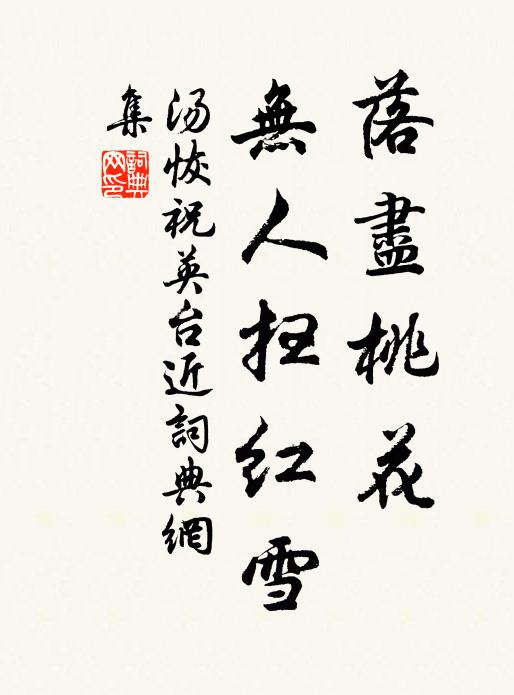 落盡桃花
無人扫紅雪
汤恢祝英台近詞典網
集
詞典
网印